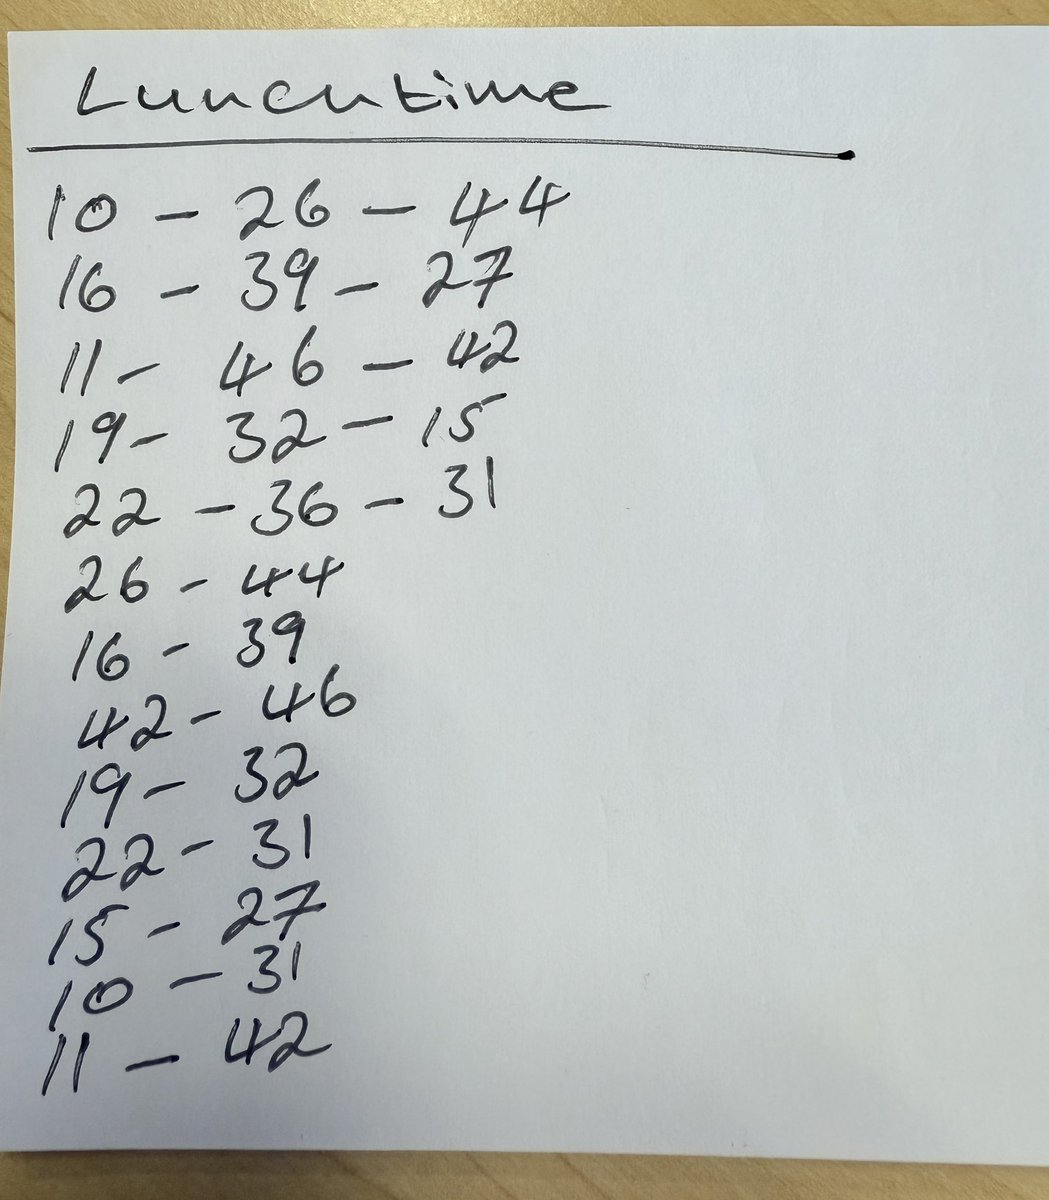 Lunchtime
10 - 26 - 44
16 - 39 - 27
11 - 46 - 42
19 - 32 - 15
22 - 36 - 31
26 - 44
16 - 39
42 - 46
19 - 32
22 - 31
15 - 27
10 - 31
11 - 42